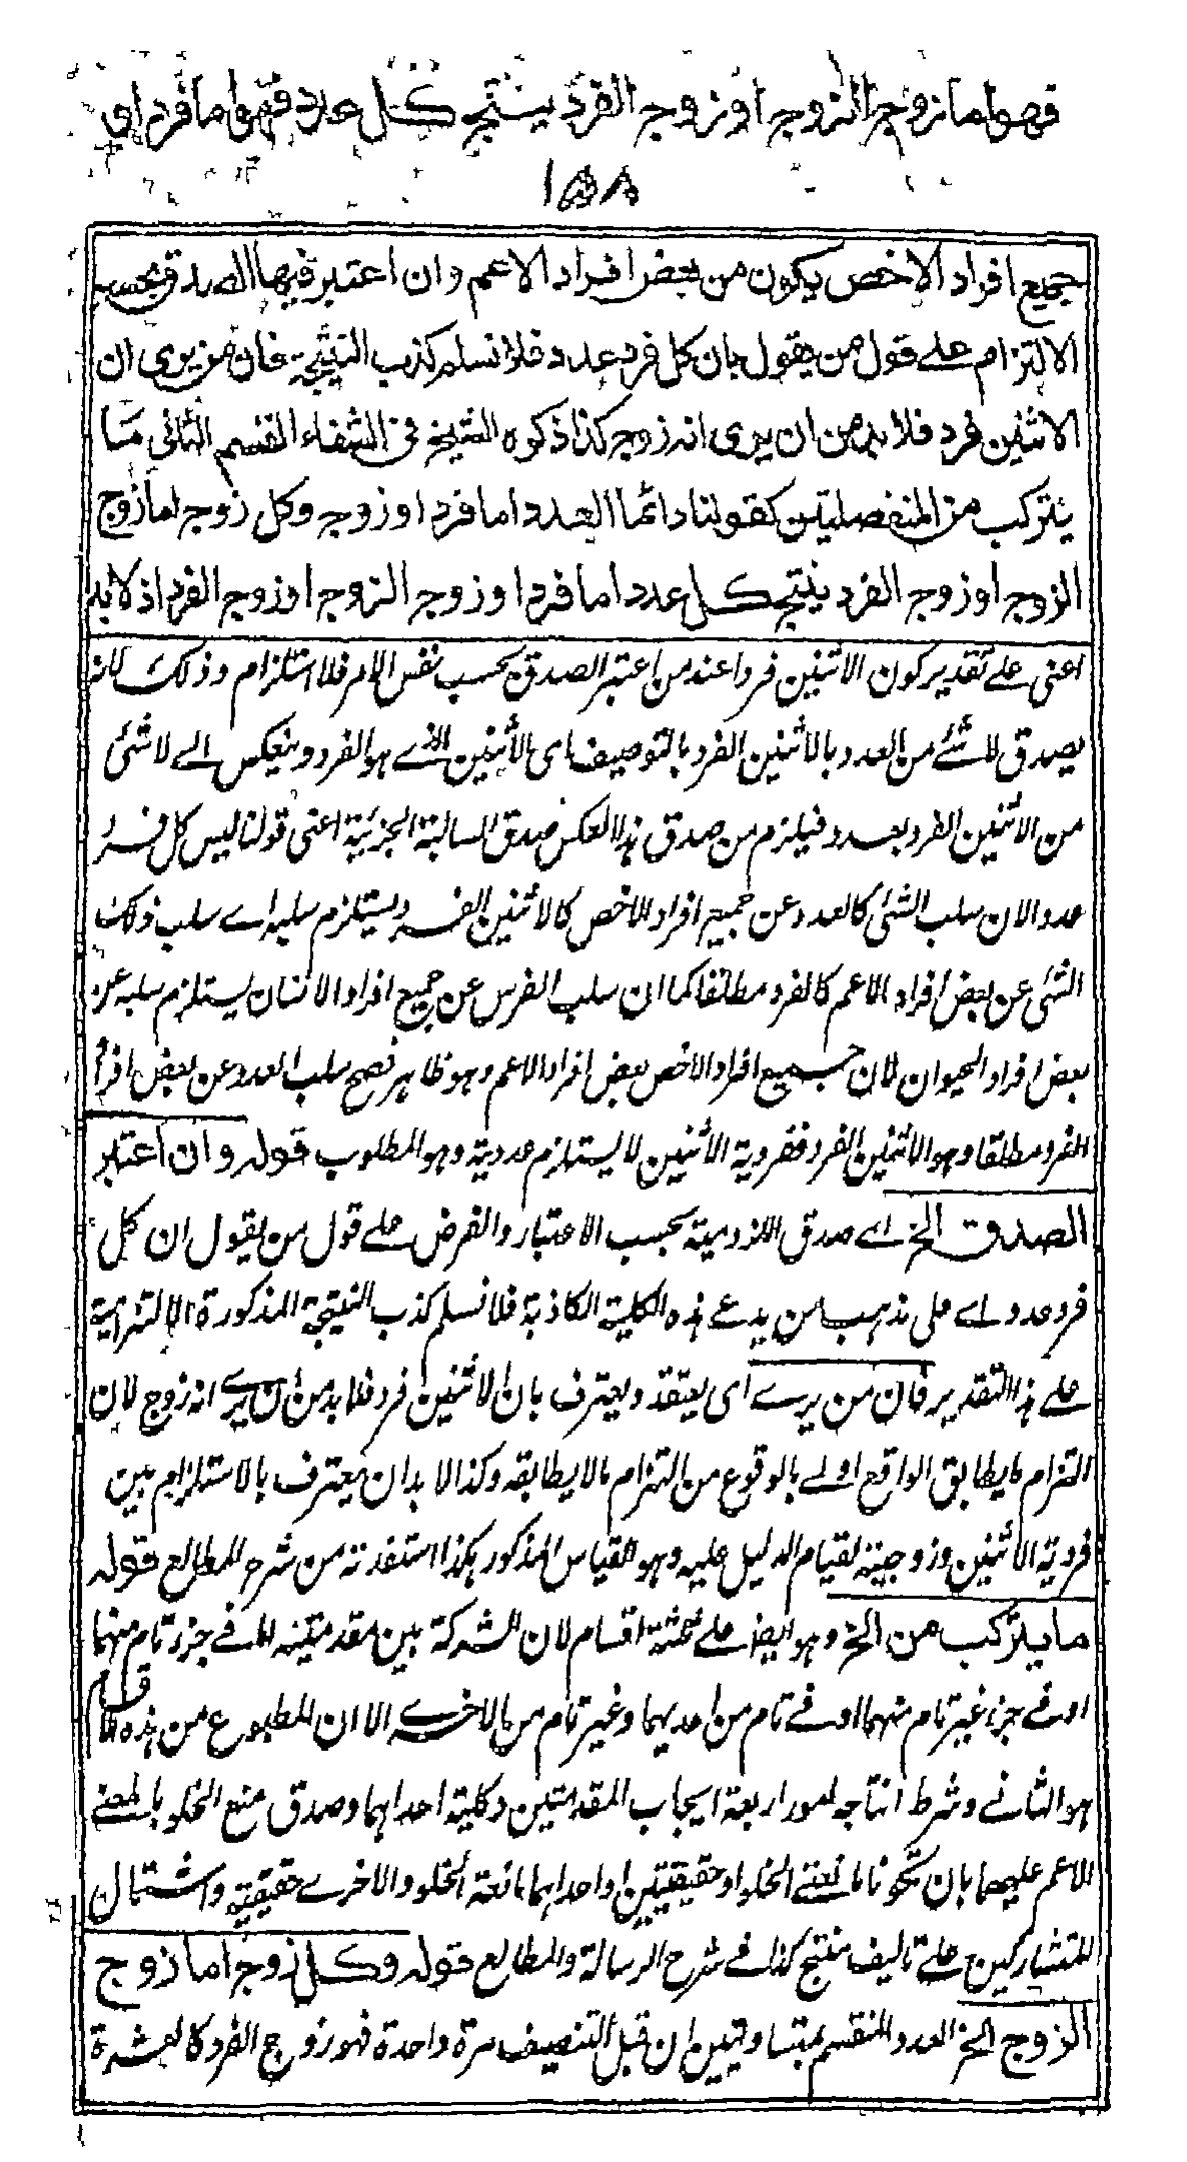 فهو اما زوج الزوج او زوج الفرد ينتج كل عدد فهو اما فرد او
١٥٨
جميع افراد الاخص يكون من بعض افراد الاعم وان اعتبر فيها الصدق بحسب
الالتزام على قول من يقول بان كل فرد عدد فلا نسلم كذب النتيجة فان من يرى ان
الاثنين فرد فلا بد من ان يرى انه زوج كذا ذكره الشيخ فى الشفاء القسم الثانى ما
يتركب من المنفصلتين كقولنا دائما العدد اما فرد او زوج وكل زوج اما زوج
الزوج او زوج الفرد ينتج كل عدد اما فرد او زوج الزوج او زوج الفرد اذ لا بد
اعنى على تقدير كون الاثنين فردا عند من اعتبر الصدق بحسب نفس الامر فلا استلزام وذلك لانه
يصدق لا شئ من العدد بالاثنين الفرد بالتوصيف اى الاثنين الذى هو الفرد وينعكس الى لا شئ
من الاثنين الفرد بعدد فيلزم من صدق هذا العكس صدق السالبة الجزئية اعنى قولنا ليس كل فرد
عددا لان سلب الشئ كالعدد عن جميع افراد الاخص كالاثنين الفرد يستلزم سلبه اى سلب ذلك
الشئ عن بعض افراد الاعم كالفرد مطلقا كما ان سلب الفرس عن جميع افراد الانسان يستلزم سلبه عن
بعض افراد الحيوان لان جميع افراد الاخص بعض افراد الاعم وهو ظاهر فصح سلب العدد عن بعض افراد
الفرد مطلقا وهو الاثنين الفرد ففردية الاثنين لا يستلزم عدديته وهو المطلوب قوله وان اعتبر
الصدق الخ اى صدق اللزومية بحسب الاعتبار والفرض على قول من يقول ان كل
فرد عدد اى على مذهب من يدعى هذه الكلية الكاذبة فلا نسلم كذب النتيجة المذكورة الالتزامية
على هذا التقدير فان من يرى اى يعتقد ويعترف بان الاثنين فرد فلا بد من ان يرى انه زوج لان
التزام ما يطابق الواقع اولى بالوقوع من التزام ما لا يطابقه وكذا لا بد ان يعترف بالاستلزام بين
فردية الاثنين وزوجيته لقيام الدليل عليه وهو القياس المذكور هكذا استفدته من شرح المطالع قوله
ما يتركب من الخ وهو ايضا على ثلثة اقسام لان الشركة بين مقدمتيه اما فى جزء تام منهما
او فى جزء غير تام منهما او فى تام من احديهما وغير تام من الاخرى الا ان المطبوع من هذه الاقسام
هو الثانى وشرط انتاجه امور اربعة ايجاب المقدمتين وكلية احداهما وصدق منع الخلو بالمعنى
الاعم عليهما بان تكونا مانعتى الخلو او حقيقيتين او احداهما مانعة الخلو والاخرى حقيقية واشتمال
المتشاركين على تاليف منتج كذا فى شرح الرسالة والمطالع قوله وكل زوج اما زوج
الزوج الخ العدد المنقسم بمتساويين ان قبل التنصيف مرة واحدة فهو زوج الفرد كالعشرة